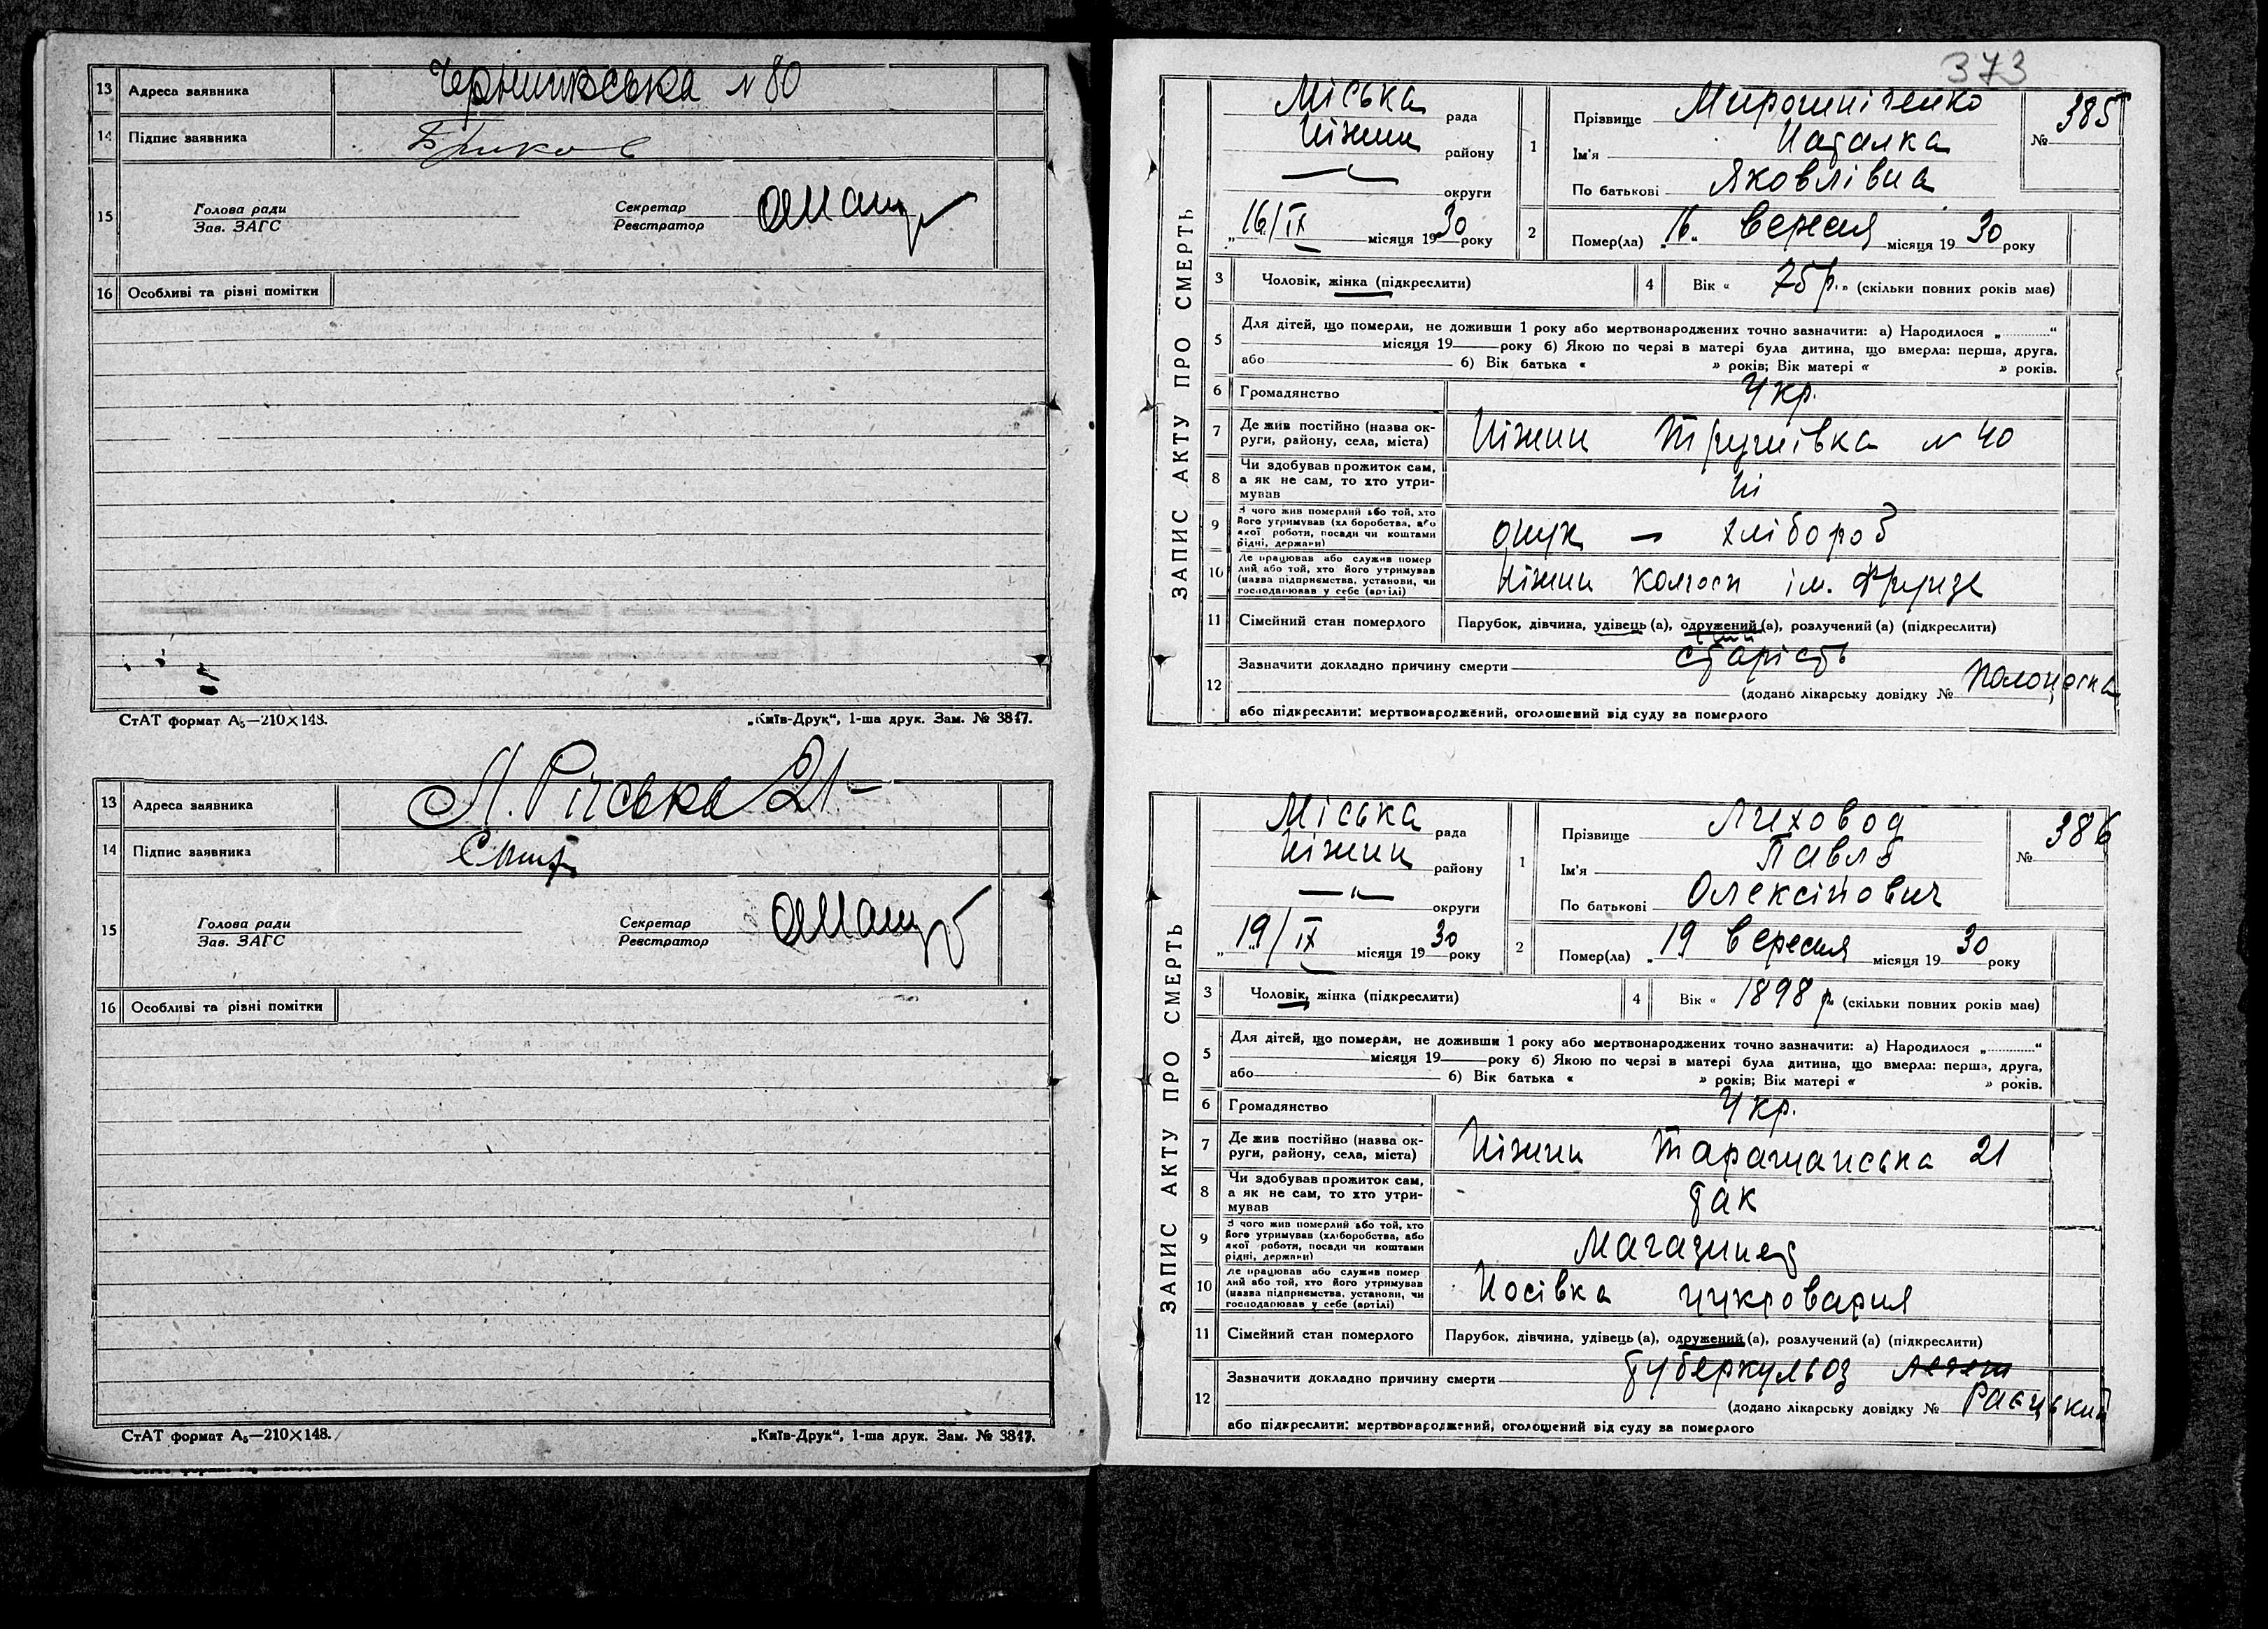 13 Адреса заявника Чернигівська № 80
14 Підпис заявника
15 Голова ради Секретар
Зав. ЗАГС Реєстратор
16 Особливі та різні помітки
СтАТ формат А5—210×148. „Київ-Друк“, 1-ша друк. Зам. № 3847.
13 Адреса заявника Л. Річська 21
14 Підпис заявника
15 Голова ради Секретар
Зав. ЗАГС Реєстратор
16 Особливі та різні помітки
СтАТ формат А5—210×148. „Київ-Друк“, 1-ша друк. Зам. № 3847.
373
ЗАПИС АКТУ ПРО СМЕРТЬ
Міська рада
Ніжин району
—„— округи
„16/IX місяця 1930 року
1 Прізвище Мирошніченко
Ім'я Наталка
По батькові Яковлівна
№ 385
2 Помер(ла) „16„ вересня місяця 1930 року
3 Чоловік, жінка (підкреслити) 4 Вік « 75 р. » (скільки повних років має)
5 Для дітей, що померли, не доживши 1 року або мертвонароджених точно зазначити: а) Народилося „ “
місяця 19 року б) Якою по черзі в матері була дитина, що вмерла: перша, друга,
або б) Вік батька « » років; Вік матері « » років.
6 Громадянство Укр.
7 Де жив постійно (назва округи, району, села, міста) Ніжин № 40
8 Чи здобував прожиток сам, а як не сам, то хто утримував Ні
9 З чого жив померлий або той, хто його утримував (хліборобства, або якої роботи, посади чи коштами рідні, держави) онук — хлібороб
10 Де працював або служив померлий або той, хто його утримував (назва підприємства, установи, чи господарював у себе (артілі) Ніжин колгосп ім. Фрунзе
11 Сімейний стан померлого Парубок, дівчина, удівець (а), одружений (а), розлучений (а) (підкреслити)
12 Зазначити докладно причину смерти старість
(додано лікарську довідку №
або підкреслити: мертвонароджений, оголошений від суду за померлого
ЗАПИС АКТУ ПРО СМЕРТЬ
Міська рада
Ніжин району
—„— округи
„19/IX місяця 1930 року
1 Прізвище Лиховод
Ім'я Павло
По батькові Олексійович
№ 386
2 Помер(ла) „19 вересня місяця 1930 року
3 Чоловік, жінка (підкреслити) 4 Вік « 1898 р. (скільки повних років має)
5 Для дітей, що померли, не доживши 1 року або мертвонароджених точно зазначити: а) Народилося „ “
місяця 19 року б) Якою по черзі в матері була дитина, що вмерла: перша, друга,
або б) Вік батька « » років; Вік матері « » років.
6 Громадянство Укр.
7 Де жив постійно (назва округи, району, села, міста) Ніжин Таращанська 21
8 Чи здобував прожиток сам, а як не сам, то хто утримував так
9 З чого жив померлий або той, хто його утримував (хліборобства, або якої роботи, посади чи коштами рідні, держави) Магазинер
10 Де працював або служив померлий або той, хто його утримував (назва підприємства, установи, чи господарював у себе (артілі) Носівка цукроварня
11 Сімейний стан померлого Парубок, дівчина, удівець (а), одружений (а), розлучений (а) (підкреслити)
12 Зазначити докладно причину смерти туберкульоз
(додано лікарську довідку № Раєцький
або підкреслити: мертвонароджений, оголошений від суду за померлого